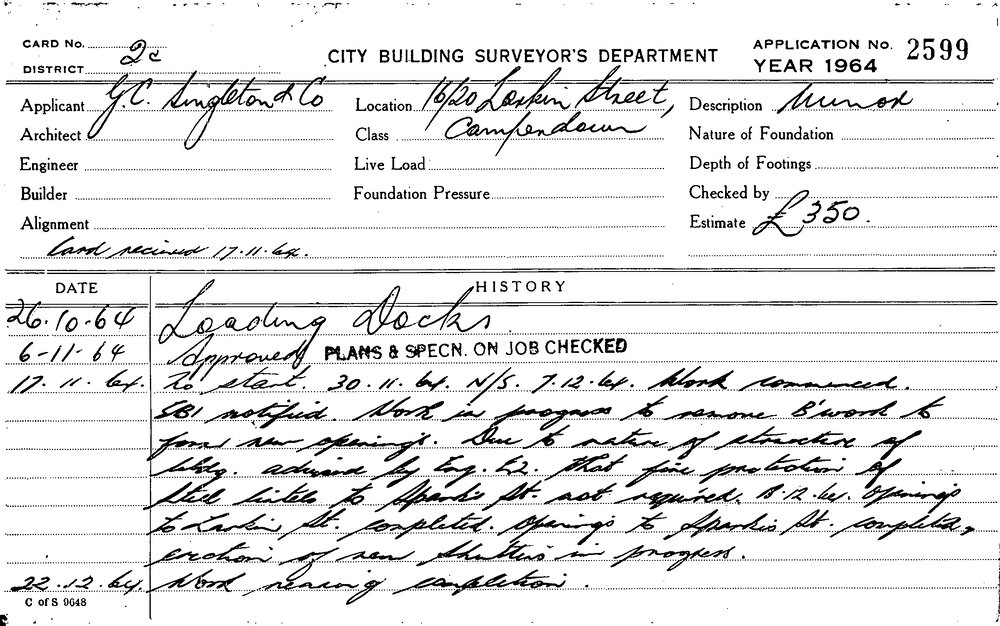 CARD No. 2c
CITY BUILDING SURVEYOR'S DEPARTMENT
APPLICATION No. 2599
DISTRICT
YEAR 1964
Applicant G.C. Singleton & Co
Location 16/20 Larkin Street,
Description Minor
Architect
Class Camperdown
Nature of Foundation
Engineer
Live Load
Depth of Footings
Builder
Foundation Pressure
Checked by
Alignment
Estimate £350.
Card received 17.11.64.
DATE
HISTORY
26.10.64 Loading Docks.
6-11-64 Approved PLANS & SPECN. ON JOB CHECKED
17.11.64. To start. 30.11.64. N/S. 7.12.64. Work commenced.
SBI notified. Work in progress to remove B'work to
form new openings. Due to nature of structure of
bldg. advised by Eng. that fire protection of
steel lintels to Sparkis St. not required. 8.12.64. Openings
to Larkin St. completed. Openings to Sparkis St. completed,
erection of new shutters in progress.
22.12.64. Work nearing completion.
C of S 9648